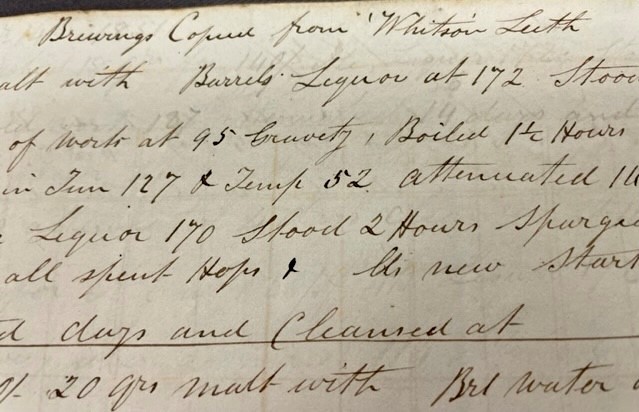 Brewings Copied from Whitson Leith
alt with Barrels Liquor at 172 Stood
of worts at 95 Gravety, Boiled 1½ Hours
in Tun 127 & Temp 52 attenuated
Liquor 170 Stood 2 Hours Sparged
all spent Hops & lbs new Start
days and Cleansed at
20 qrs malt with Brl water